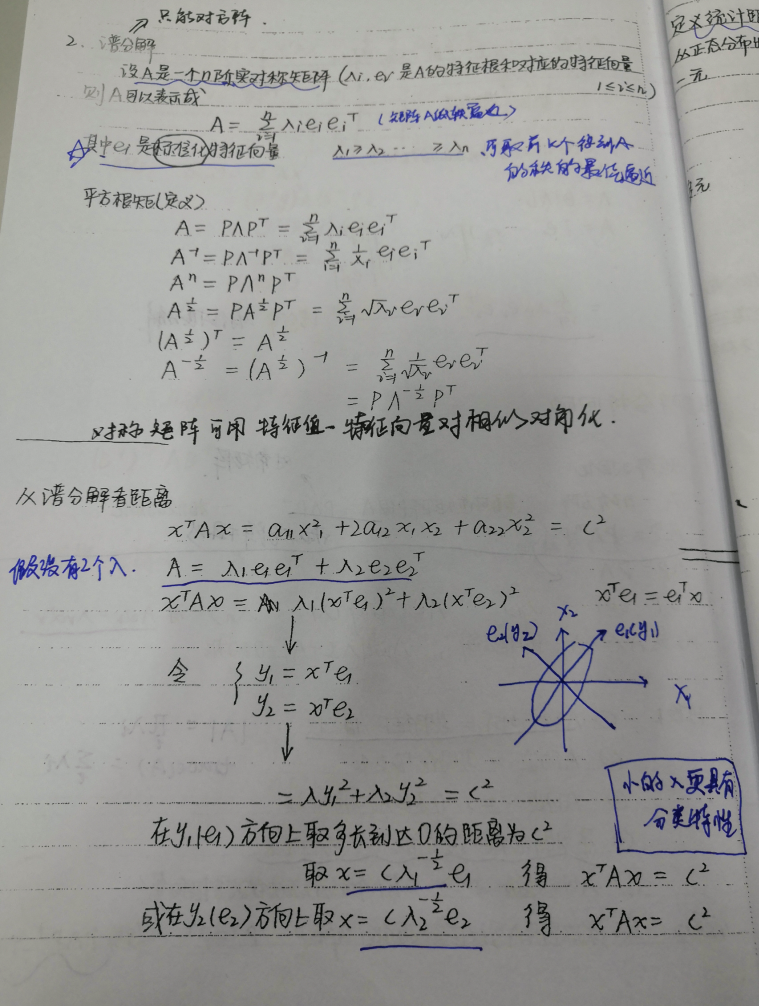 只能对方阵.
2. 谱分解
设A是一个n阶实对称矩阵 (λi, ei 是A的特征根和对应的特征向量
1≤i≤n)
则A可以表示成
A = Σ_{i=1}^{n} λi ei ei^T (矩阵A的
其中ei是标准化特征向量 λ1≥λ2 … ≥λn 可取前k个得到A
的 的最优逼近
平方根矩(定义)
A = PΛP^T = Σ_{i=1}^{n} λi ei ei^T
A^{-1} = PΛ^{-1}P^T = Σ_{i=1}^{n} 1/λi ei ei^T
A^n = PΛ^nP^T
A^{1/2} = PΛ^{1/2}P^T = Σ_{i=1}^{n} √λi ei ei^T
(A^{1/2})^T = A^{1/2}
A^{-1/2} = (A^{1/2})^{-1} = Σ_{i=1}^{n} 1/√λi ei ei^T
= PΛ^{-1/2}P^T
对称矩阵可用特征值-特征向量对相似对角化.
从谱分解看距离
x^TAx = a11x1^2 + 2a12x1x2 + a22x2^2 = c^2
假设有2个λ. A = λ1e1e1^T + λ2e2e2^T
x^TAx = λ1(x^Te1)^2 + λ2(x^Te2)^2 x^Te1 = e1^Tx
x2
e2(y2) e1(y1)
x1
令 { y1 = x^Te1
y2 = x^Te2
= λy1^2 + λ2y2^2 = c^2
小的λ更具有
分类特性
在y1(e1)方向上取多长到达0的距离为c^2
取 x = cλ1^{-1/2}e1 得 x^TAx = c^2
或在y2(e2)方向上取 x = cλ2^{-1/2}e2 得 x^TAx = c^2
定义统计距
从正态分布
一元
元